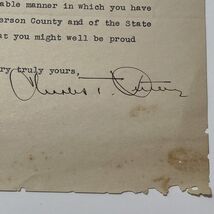 able manner in which you have
erson County and of the State
at you might well be proud
ry truly yours,